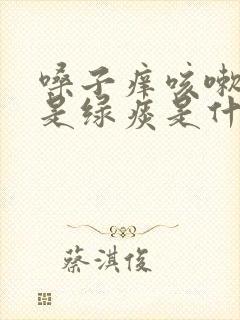 嗓子痒咳嗽
是绿痰是什
蔡淇俊